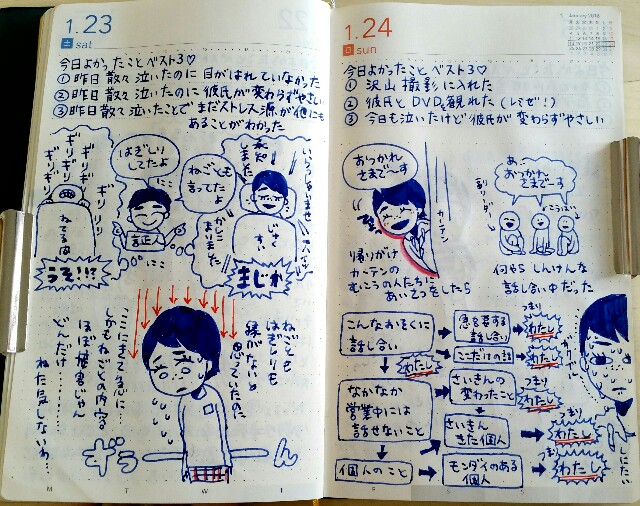 1.23
土 sat
今日よかったことベスト3♡
①昨日散々泣いたのに目がはれていなかった
②昨日散々泣いたのに彼氏が変わらずやさしい
③昨日散々泣いたことでまだストレス源が他にも
あることがわかった
ギリギリ
ギリギリ
ギリギリ
ねてるは
うそ!!?
はぎしり
してたよ
ねごとも
言ってたよ
にこ
にこ
いらっしゃいませ
かしこ
まいりました
まじか
ねごとも
はぎしりも
縁がないと
思っていたのに
ここにきて急に…
しかもねごとの内容
ほぼ接客じゃん
どんだけ………
ねた気しないわ…
ずぅーーん
M T W T F S S
1.24
日 sun
January 2016
今日よかったことベスト3♡
①沢山撮影に入れた
②彼氏とDVDを観れた(レミゼ!)
③今日も泣いたけど彼氏が変わらずやさしい
おつかれ
さまでーす
カーテン
帰りがけ
カーテンの
むこうの人たちに
あいさつをしたら
あ…
おつかれ
さまでーす
何やらしんけんな
話し合い中だった
こんなおそくに
話し合い
急を要する
話し合い
つまり
わたし
ここだけの話
わたし
わたし
なかなか
営業中には
話せないこと
さいきんの
変わったこと
つまり
わたし
さいきん
きた個人
つまり
わたし
個人のこと
モンダイのある
個人
つまり
わたし
しにたい